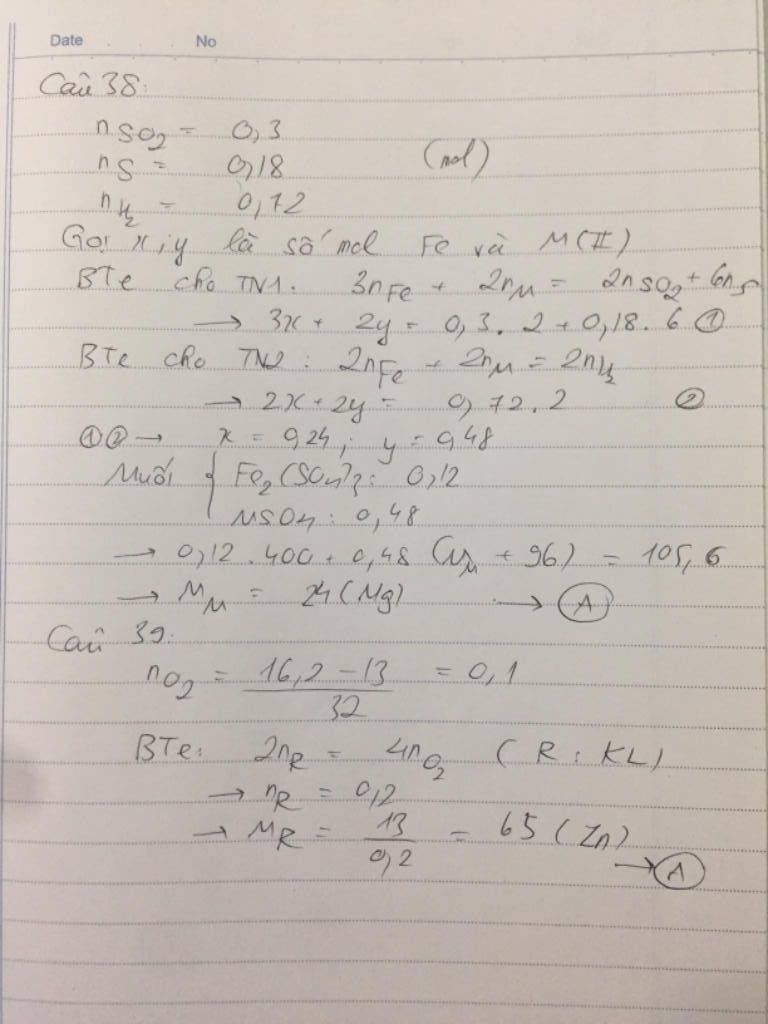 Date No
Câu 38:
nSO2 = 0,3
nS = 0,18 (mol)
nH2 = 0,72
Gọi x, y là số mol Fe và M(II)
BTe cho TN1: 3nFe + 2nM = 2nSO2 + 6nS
→ 3x + 2y = 0,3.2 + 0,18.6 ①
BTe cho TN2: 2nFe + 2nM = 2nH2
→ 2x + 2y = 0,72.2 ②
①② → x = 0,24; y = 0,48
Muối { Fe2(SO4)3: 0,12
MSO4: 0,48
→ 0,12.400 + 0,48 (MM + 96) = 105,6
→ MM = 24 (Mg) → A
Câu 39:
nO2 = (16,2 - 13)/32 = 0,1
BTe: 2nR = 4nO2 (R: KL)
→ nR = 0,2
→ MR = 13/0,2 = 65 (Zn)
→ A